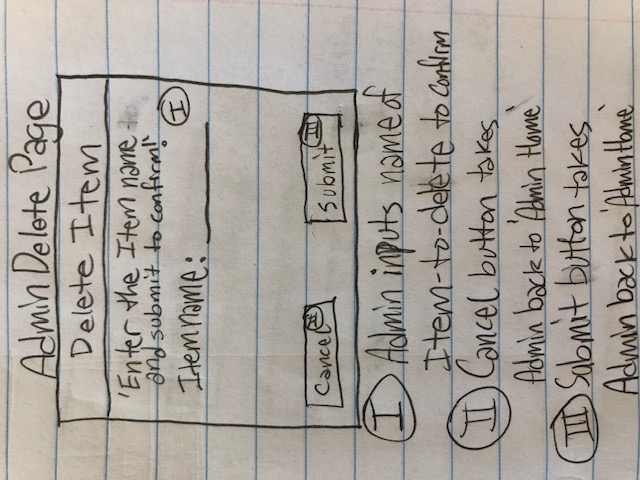 Admin Delete Page
Delete Item
'Enter the Item name
and submit to confirm!'
Itemname: I
Cancel II
Submit III
I Admin inputs name of
Item-to-delete to confirm
II Cancel button takes
Admin back to 'Admin Home'
III Submit button takes
Admin back to 'Admin Home'